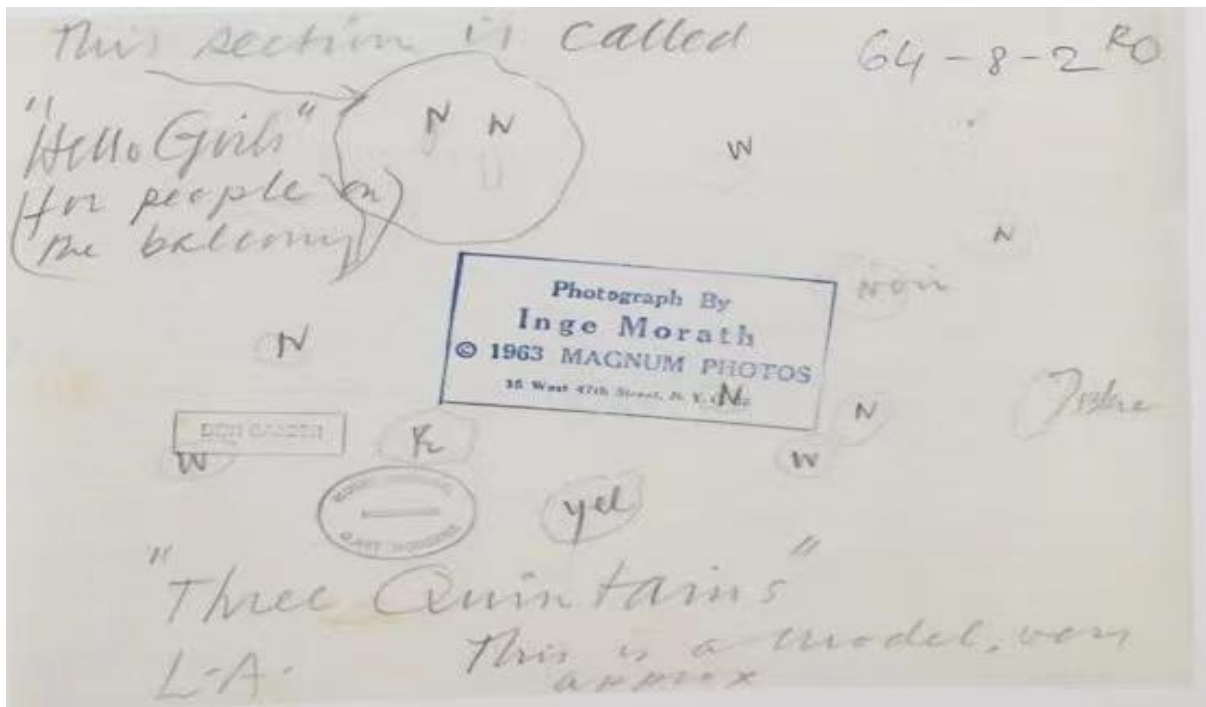 This section is called
64-8-2 RO
"Hello Girls"
(for people on
the balcony)
N N
W
N
Noir
Photograph By
Inge Morath
© 1963 MAGNUM PHOTOS
West 47th Street, N. Y.
N
N
N
R
W
W
yel
"Three Quintains"
L-A-
This is a model, very
approx